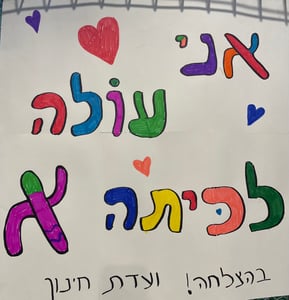 אני
עולה
לכיתה א
בהצלחה! ועדת חינוך